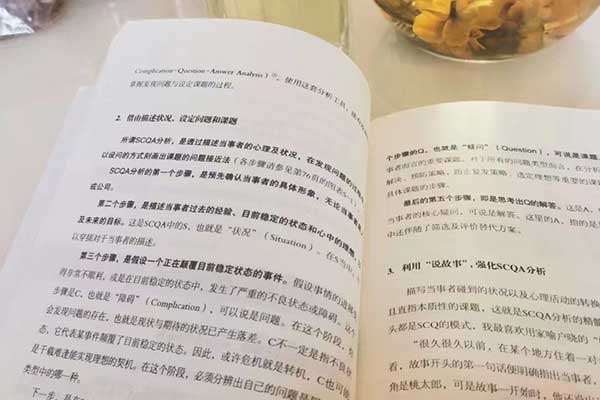 Complication-Question-Answer Analysis)⑨。使用这套分析工具,
掌握发现问题与设定课题的过程。
2. 借由描述状况、设定问题和课题
所谓SCQA分析,是透过描述当事者的心理及状况,在发现问题的
以设问的方式刻画出课题的问题接近法(各步骤请参见第76页的图表
SCQA分析的第一个步骤,是预先确认当事者的具体形象,无论当事者
或公司。
第二个步骤,是描述当事者过去的经验、目前稳定的状态和心中的理想,
及未来的目标。这是SCQA中的S,也就是“状况”(Situation)。在S当中,
以穿插对于当事者的描述。
第三个步骤,是假设一个正在颠覆目前稳定状态的事件。假设事情的进展
得非常不顺利,或是在目前稳定的状态中,发生了严重的不良状态或障碍。这个
步骤是C,也就是“障碍”(Complication),可以说是问题。在这个阶段,
会发现问题的存在,也就是现状与期待的状况已产生落差。C不一定是指不良状
态,它代表某事件颠覆了目前稳定的状态。因此,或许危机就是转机,C也可能
是千载难逢能实现理想的契机。在这个阶段,必须分辨出自己的问题是
类型中的哪一种。
下一步,是在
个步骤的Q,也就是“疑问”(Question),可说是课题
事者而言的重要课题。对于所有的问题类型而言,在分析
解决、预防策略、防止复发策略、选定理想等重要的课题
具体课题的步骤。
最后的第五个步骤,即是思考出Q的解答。这是A,
当事者的核心疑问,可说是解答。这里的A,指的是
中还伴随了筛选及评价替代方案。
3. 利用“说故事”,强化SCQA分析
描写当事者碰到的状况以及心理活动的转换
且直指本质性的课题,这就是SCQA分析的精髓
头都是SCQ的模式,我最喜欢用家喻户晓的“
“很久很久以前,在某个地方住着一对
看,故事开头的第一句话便明确指出当事者,
角是桃太郎,可是故事一开始时,他还没出